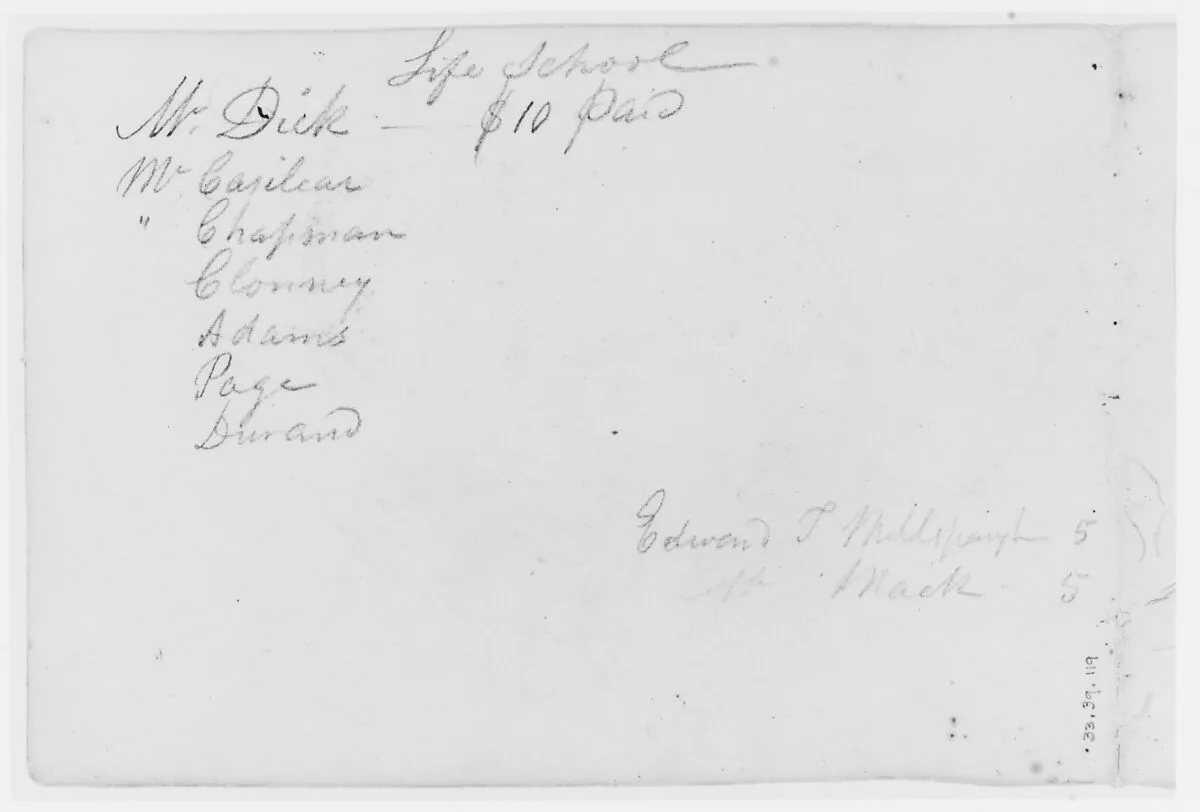 Life School
Mr. Dick — $10 Paid
Mr Casilear
" Chapman
Clonney
Adams
Page
Durand
Edward T Millspaugh 5
Mack 5
33.39.119